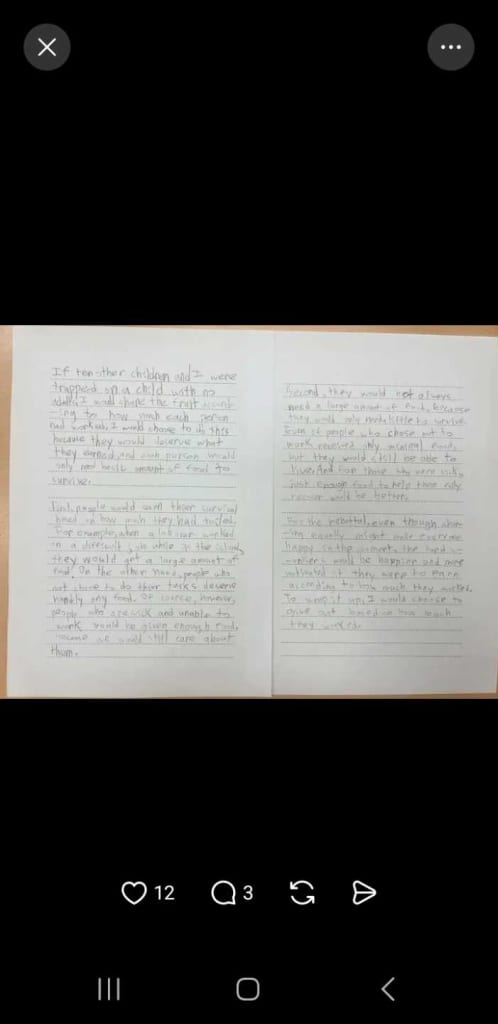 If ten other children and I were
trapped on a child with no
adults, I would share the fruit accord-
-ing to how much each person
had worked. I would choose to do this
because they would deserve what
they earned, and each person would
only need basic amount of food to
survive.
First, people would earn their survival
based on how much they had
For example, when a worked
in a difficult job while in the island,
they would get a large amount of
food. On the other hand, people who
not chose to do their tasks deserve
hardly any food. Of cource, however,
people who are sick and unable to
work would be given enough food,
because we would still care about
them.
Second, they would not always
need a large amount of food, because
they would only need little to survive.
Even if people who chose not to
work received only minimal food,
but they would still be able to
live. And for those who were sick,
just enough food to help them only
recover would be better.
For the rebuttal, even though shar-
-ing equally might make everyone
happy in the moment, the hard w-
-orkers would be happier and more
motivated if they were to earn
according to how much they worked.
To wrap it up, I would choose to
give out based on how much
they worked.
12
3